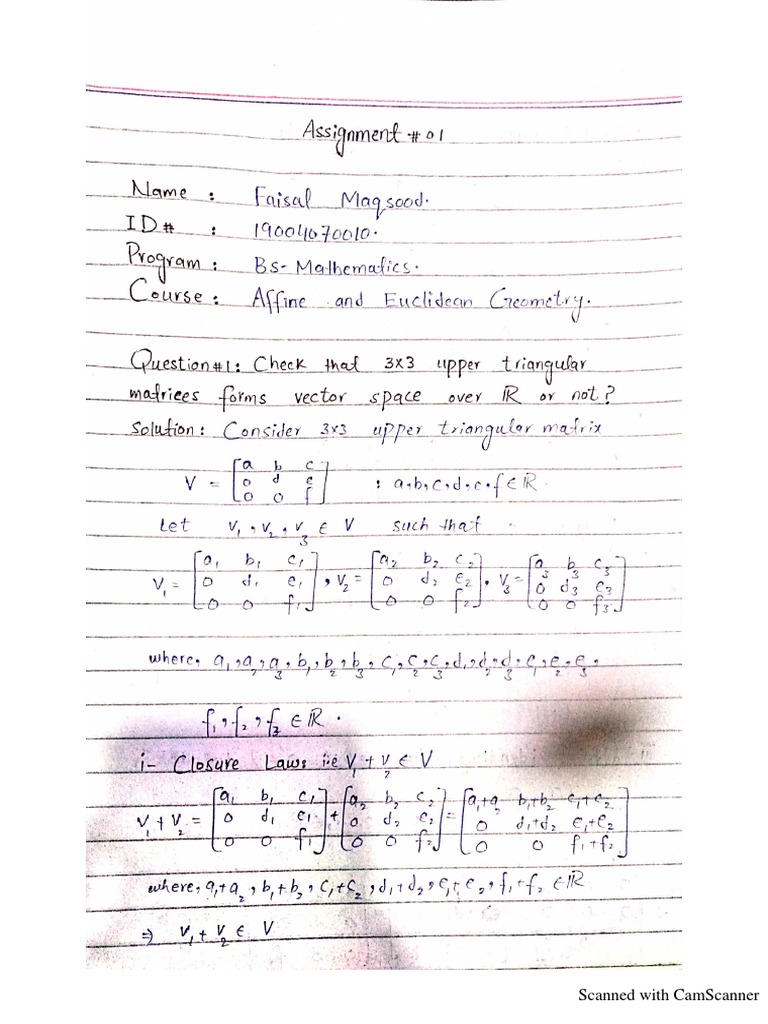 Assignment # 01
Name : Faisal Maqsood.
ID# : 19004070010.
Program : Bs-Mathematics.
Course : Affine and Euclidean Geometry.
Question#1: Check that 3x3 upper triangular
matrices forms vector space over ℝ or not?
Solution: Consider 3x3 upper triangular matrix
V = [a b c; 0 d e; 0 0 f] : a,b,c,d,e,f ∈ ℝ.
Let v₁, v₂, v₃ ∈ V such that
V₁ = [a₁ b₁ c₁; 0 d₁ e₁; 0 0 f₁], V₂ = [a₂ b₂ c₂; 0 d₂ e₂; 0 0 f₂], V₃ = [a₃ b₃ c₃; 0 d₃ e₃; 0 0 f₃]
where, a₁, a₂, a₃, b₁, b₂, b₃, c₁, c₂, c₃, d₁, d₂, d₃, e₁, e₂, e₃,
f₁, f₂, f₃ ∈ ℝ.
i- Closure Law: i.e V₁ + V₂ ∈ V
V₁ + V₂ = [a₁ b₁ c₁; 0 d₁ e₁; 0 0 f₁] + [a₂ b₂ c₂; 0 d₂ e₂; 0 0 f₂] = [a₁+a₂ b₁+b₂ c₁+c₂; 0 d₁+d₂ e₁+e₂; 0 0 f₁+f₂]
where, a₁+a₂, b₁+b₂, c₁+c₂, d₁+d₂, e₁+e₂, f₁+f₂ ∈ ℝ
⇒ V₁ + V₂ ∈ V
Scanned with CamScanner